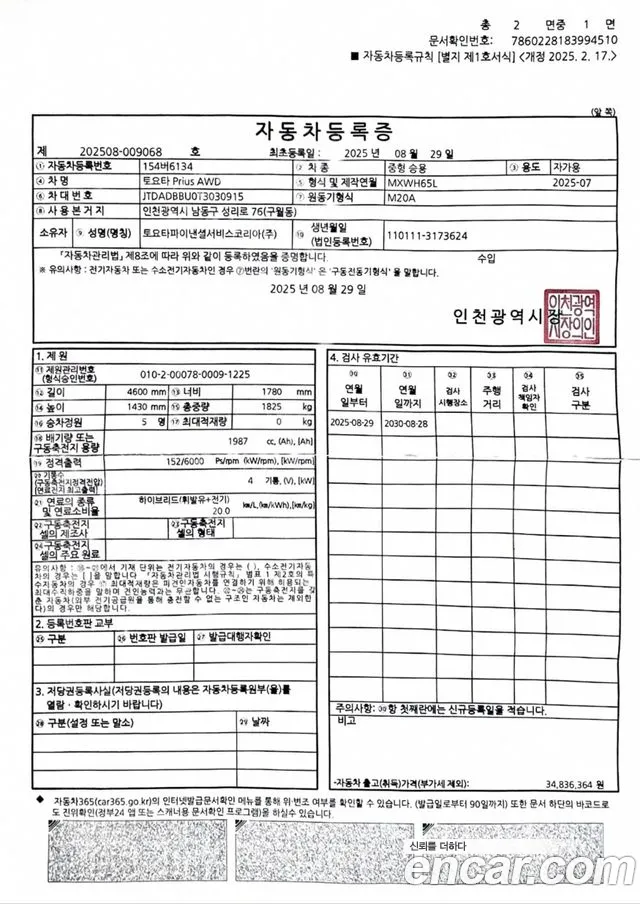 총 2 면중 1 면
문서확인번호: 7860228183994510
■ 자동차등록규칙 [별지 제1호서식] <개정 2025. 2. 17.>
(앞 쪽)
자동차등록증
제 202508-009068 호 최초등록일 : 2025 년 08 월 29 일
① 자동차등록번호 154버6134 ② 차 종 중형 승용 ③ 용도 자가용
④ 차 명 토요타 Prius AWD ⑤ 형식 및 제작연월 MXWH65L 2025-07
⑥ 차 대 번 호 JTDADBBU0T3030915 ⑦ 원동기형식 M20A
⑧ 사 용 본 거 지 인천광역시 남동구 성리로 76(구월동)
소유자 ⑨ 성명(명칭) 토요타파이낸셜서비스코리아(주) ⑩ 생년월일 (법인등록번호) 110111-3173624
「자동차관리법」 제8조에 따라 위와 같이 등록하였음을 증명합니다. 수입
※ 유의사항 : 전기자동차 또는 수소전기자동차인 경우 ⑦번란의 '원동기형식' 은 '구동전동기형식' 을 말합니다.
2025 년 08 월 29 일
인천광역시장
인천광역
시장의인
1. 제 원
⑪ 제원관리번호 (형식승인번호) 010-2-00078-0009-1225
⑫ 길이 4600 mm ⑬ 너비 1780 mm
⑭ 높이 1430 mm ⑮ 총중량 1825 kg
⑯ 승차정원 5 명 ⑰ 최대적재량 0 kg
⑱ 배기량 또는 구동축전지 용량 1987 cc, (Ah), [Ah]
⑲ 정격출력 152/6000 Ps/rpm (kW/rpm), [kW/rpm]
⑳ 기통수 (구동축전지정격전압) [연료전지 최고출력] 4 기통, (V), [kW]
㉑ 연료의 종류 및 연료소비율 하이브리드(휘발유+전기) 20.0 km/L,(km/kWh),[km/kg]
㉒ 구동축전지 셀의 제조사 ㉓ 구동축전지 셀의 형태
㉔ 구동축전지 셀의 주요 원료
2. 등록번호판 교부
㉕ 구분 ㉖ 번호판 발급일 ㉗ 발급대행자확인
3. 저당권등록사실(저당권등록의 내용은 자동차등록원부(을)를
열람ㆍ확인하시기 바랍니다)
㉘ 구분(설정 또는 말소) ㉙ 날짜
4. 검사 유효기간
㉚ 연월일부터 ㉛ 연월일까지 ㉜ 검사 시행장소 ㉝ 주행 거리 ㉞ 검사 책임자 확인 ㉟ 검사 구분
2025-08-29 2030-08-28
주의사항: ㉚항 첫째란에는 신규등록일을 적습니다.
비고
-자동차 출고(취득)가격(부가세 제외): 34,836,364 원
◆ 자동차365(car365.go.kr)의 인터넷발급문서확인 메뉴를 통해 위·변조 여부를 확인할 수 있습니다. (발급일로부터 90일까지) 또한 문서 하단의 바코드로
도 진위확인(정부24 앱 또는 스캐너용 문서확인 프로그램)을 하실수 있습니다.
신뢰를 더하다
encar.com